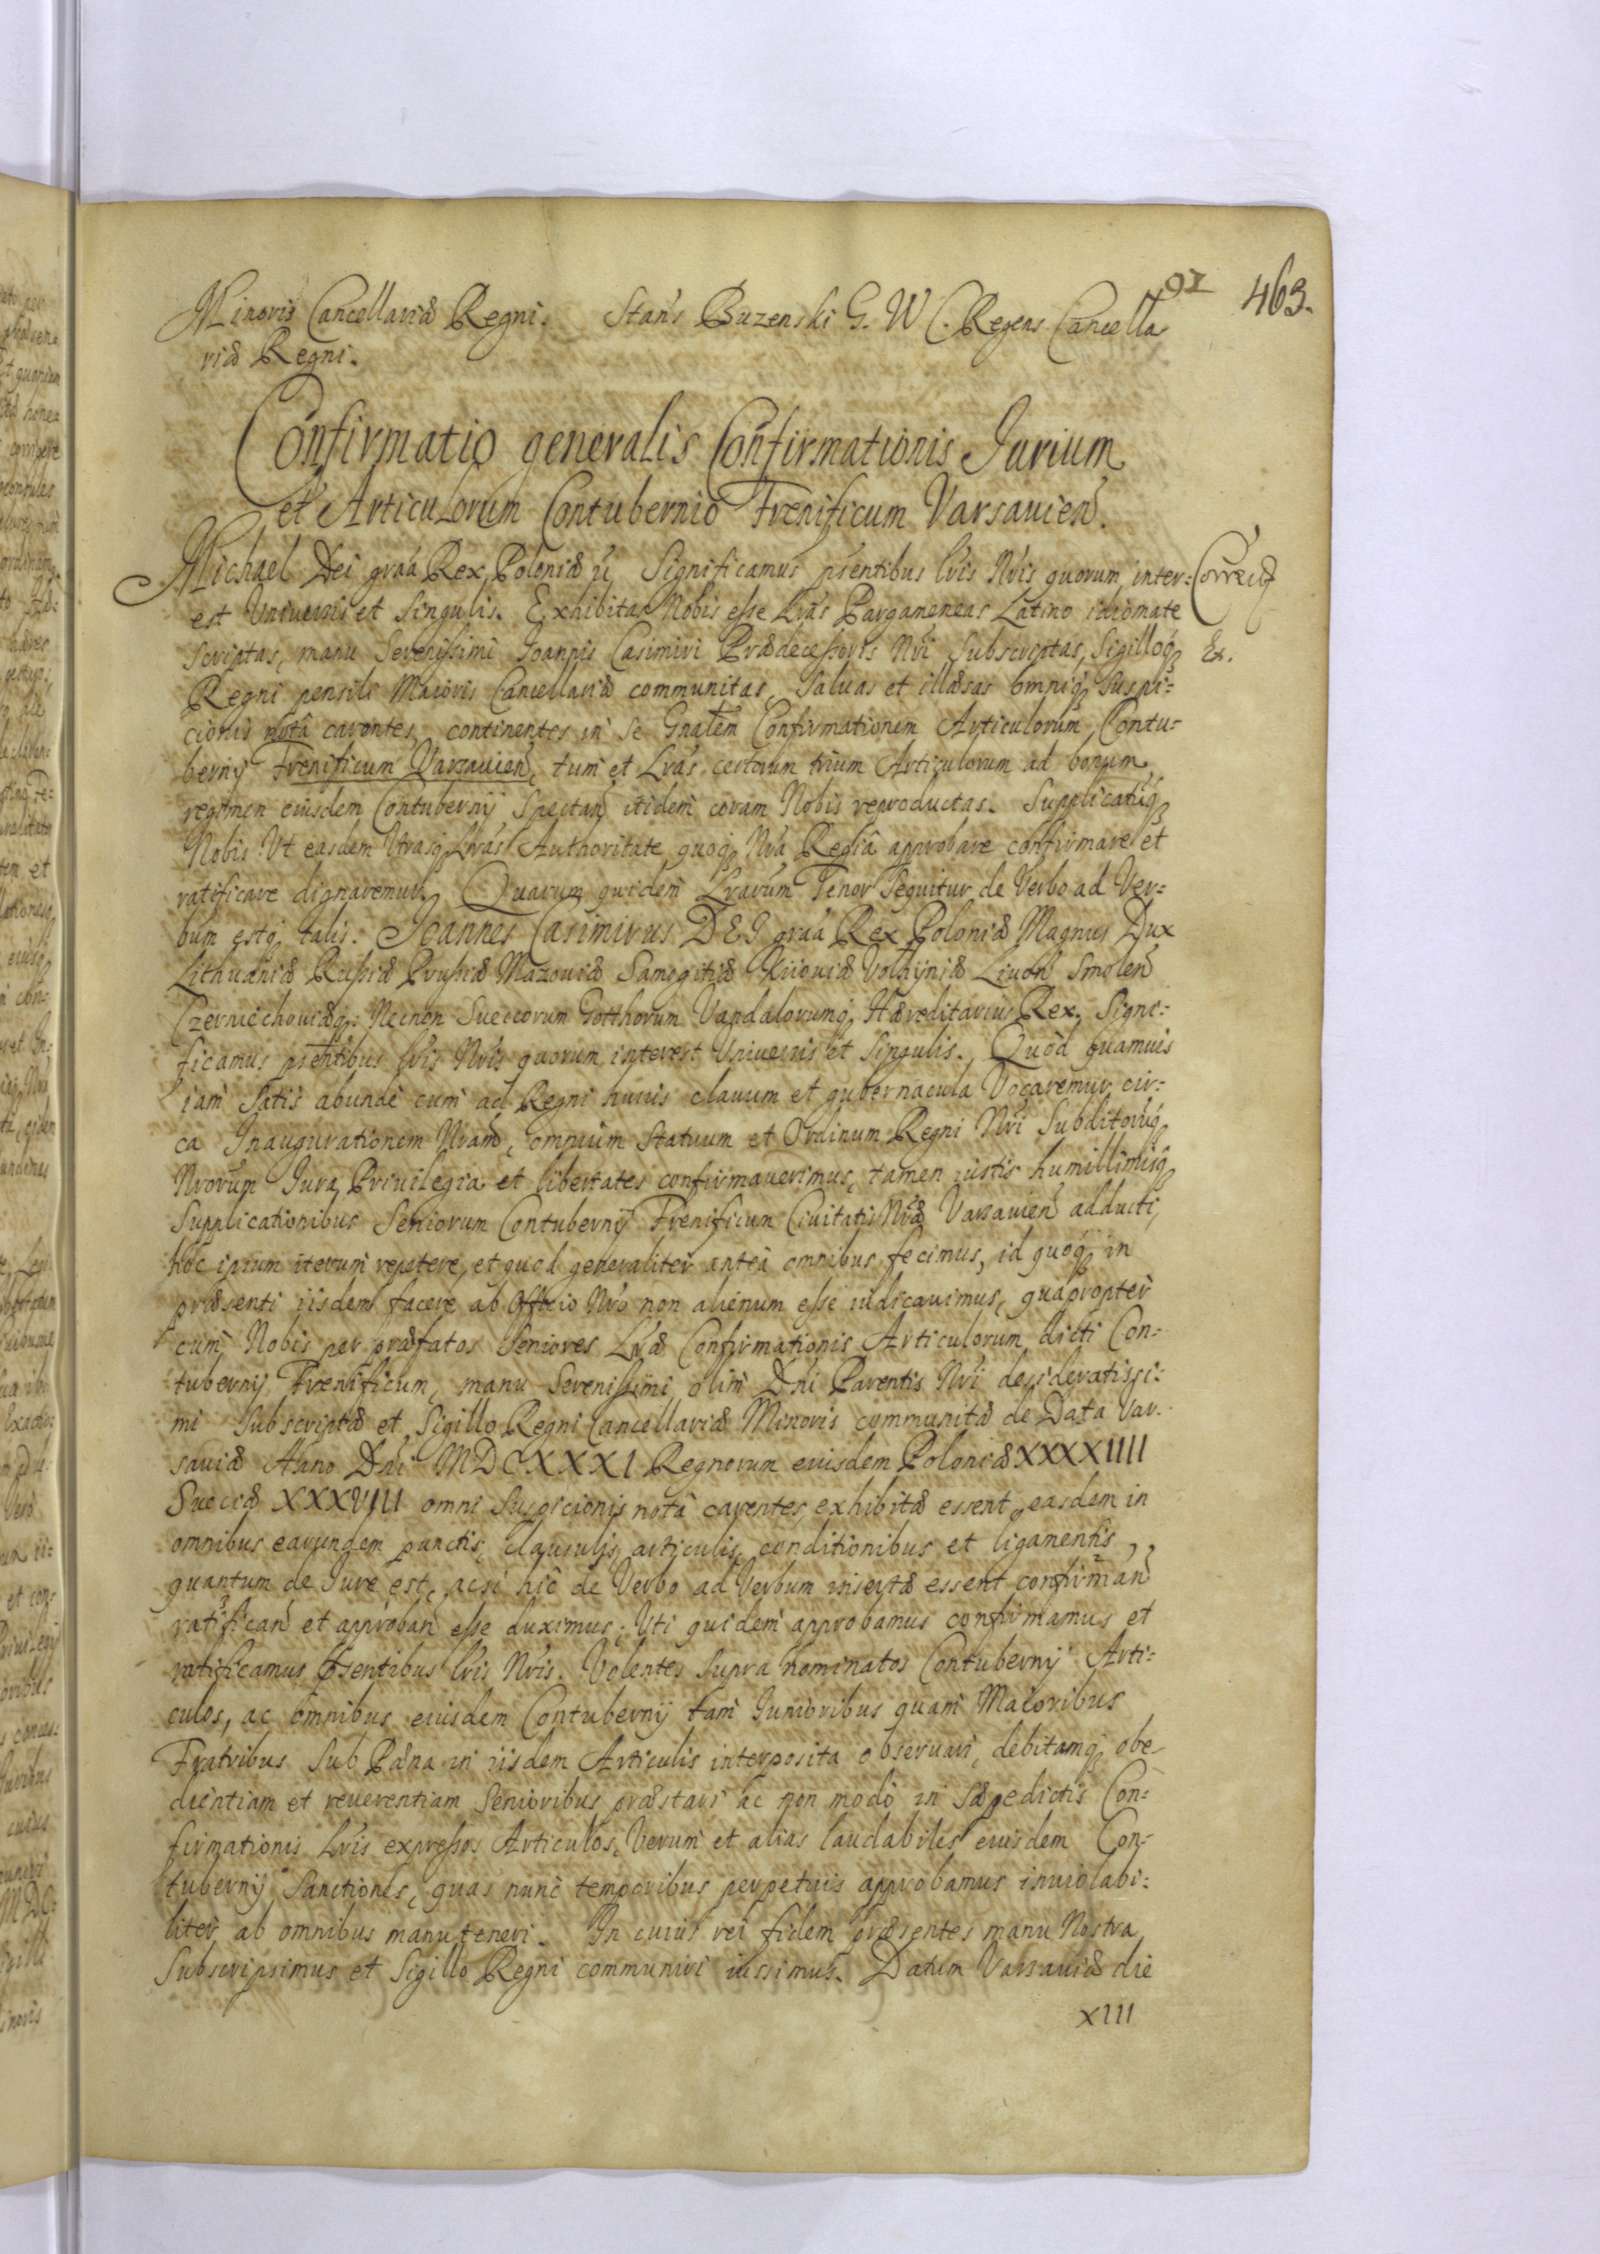 91
463.
Minoris Cancellariæ Regni. Stan's Buzenski G. W C. Regens Cancella
riæ Regni.
Confirmatio generalis Confirmationis Jurium
et Articulorum Contubernio Frenificum Varsavien.
Michael Dei gra'a Rex Poloniæ Significamus p'sentibus l'ris N'ris quorum inter=
Correct
est Universis et Singulis. Exhibitas Nobis esse L'ras Pargameneas Latino idiomate
scriptas, manu Serenissimi Joannis Casimiri Prædecessoris N'ri Subscriptas, Sigilloq
Ex.
Regni pensili Maioris Cancellariæ communitas, Salvas et illæsas omniq suspi=
cionis notâ carentes continentes in se Gn'alem Confirmationem Articulorum Contu=
bernij Frenificum Varsavien, tum et L'ras certorum trium Articulorum ad bonum
regimen eiusdem Contubernij Spectan itidem coram Nobis reproductas. Supplicatuq
Nobis Ut easdem Utrasq L'ras Authoritate quoq N'ra Regiâ approbare confirmare et
ratificare dignaremur. Quarum quidem L'rarum Tenor Sequitur de Verbo ad Ver=
bum estq talis. Joannes Casimirus DEI gra'a Rex Poloniæ Magnus Dux
Lithuaniæ Russiæ Prussiæ Mazoviæ Samogitiæ Kiioviæ Volhyniæ Livon Smolen
Czerniechoviæq Necnon Suecorum Gotthorum Vandalorumq Hæreditarius Rex. Signi=
ficamus p'sentibus l'ris N'ris quorum interest Universis et Singulis. Quòd quamvis
iam satis abunde cum ad Regni huius clavum et gubernacula Vocaremur cir=
ca Inaugurationem N'ram, omnium Statuum et Ordinum Regni N'ri Subditoruq
N'rorum Jura Privilegia et libertates confirmaverimus, tamen iustis humillimisq
Supplicationibus Seniorum Contubernij Frenificum Civitatis N'ræ Varsavien adducti,
hoc ipsum iterum repetere, et quod generaliter anteà omnibus fecimus, id quoq in
præsenti iisdem facere ab Officio N'ro non alienum esse iudicavimus, quapropter
cum Nobis per præfatos Seniores L'ræ Confirmationis Articulorum dicti Con=
tubernij Frenificum, manu Serenissimi olim D'ni Parentis N'ri desideratissi=
mi Subscriptæ et Sigillo Regni Cancellariæ Minoris communitæ de Data Var=
saviæ Anno D'ni MDCXXXI Regnorum eiusdem Poloniæ XXXXIIII
Sueciæ XXXVIII omni Suspicionis notâ carentes exhibitæ essent, easdem in
omnibus earundem punctis, clausulis, articulis, conditionibus et ligamentis,
quantum de Jure est, acsi hic de Verbo ad Verbum insertæ essent confirman
ratifican et approban esse duximus; Uti quidem approbamus confirmamus et
ratificamus p'sentibus l'ris N'ris. Volentes supra nominatos Contubernij Arti=
culos, ac omnibus eiusdem Contubernij tam Junioribus quam Maioribus
Fratribus sub Pæna in iisdem Articulis interposita observari, debitamq obe=
dientiam et reverentiam Senioribus præstari ac non modò in Sæpedictis Con=
firmationis l'ris expressos Articulos, Verum et alias laudabiles eiusdem Con=
tubernij Sanctiones, quas nunc temporibus perpetuis approbamus inviolabi=
liter ab omnibus manuteneri. In cuius rei fidem præsentes manu Nostra
Subscripsimus et Sigillo Regni communiri iussimus. Datum Varsaviæ die
XIII